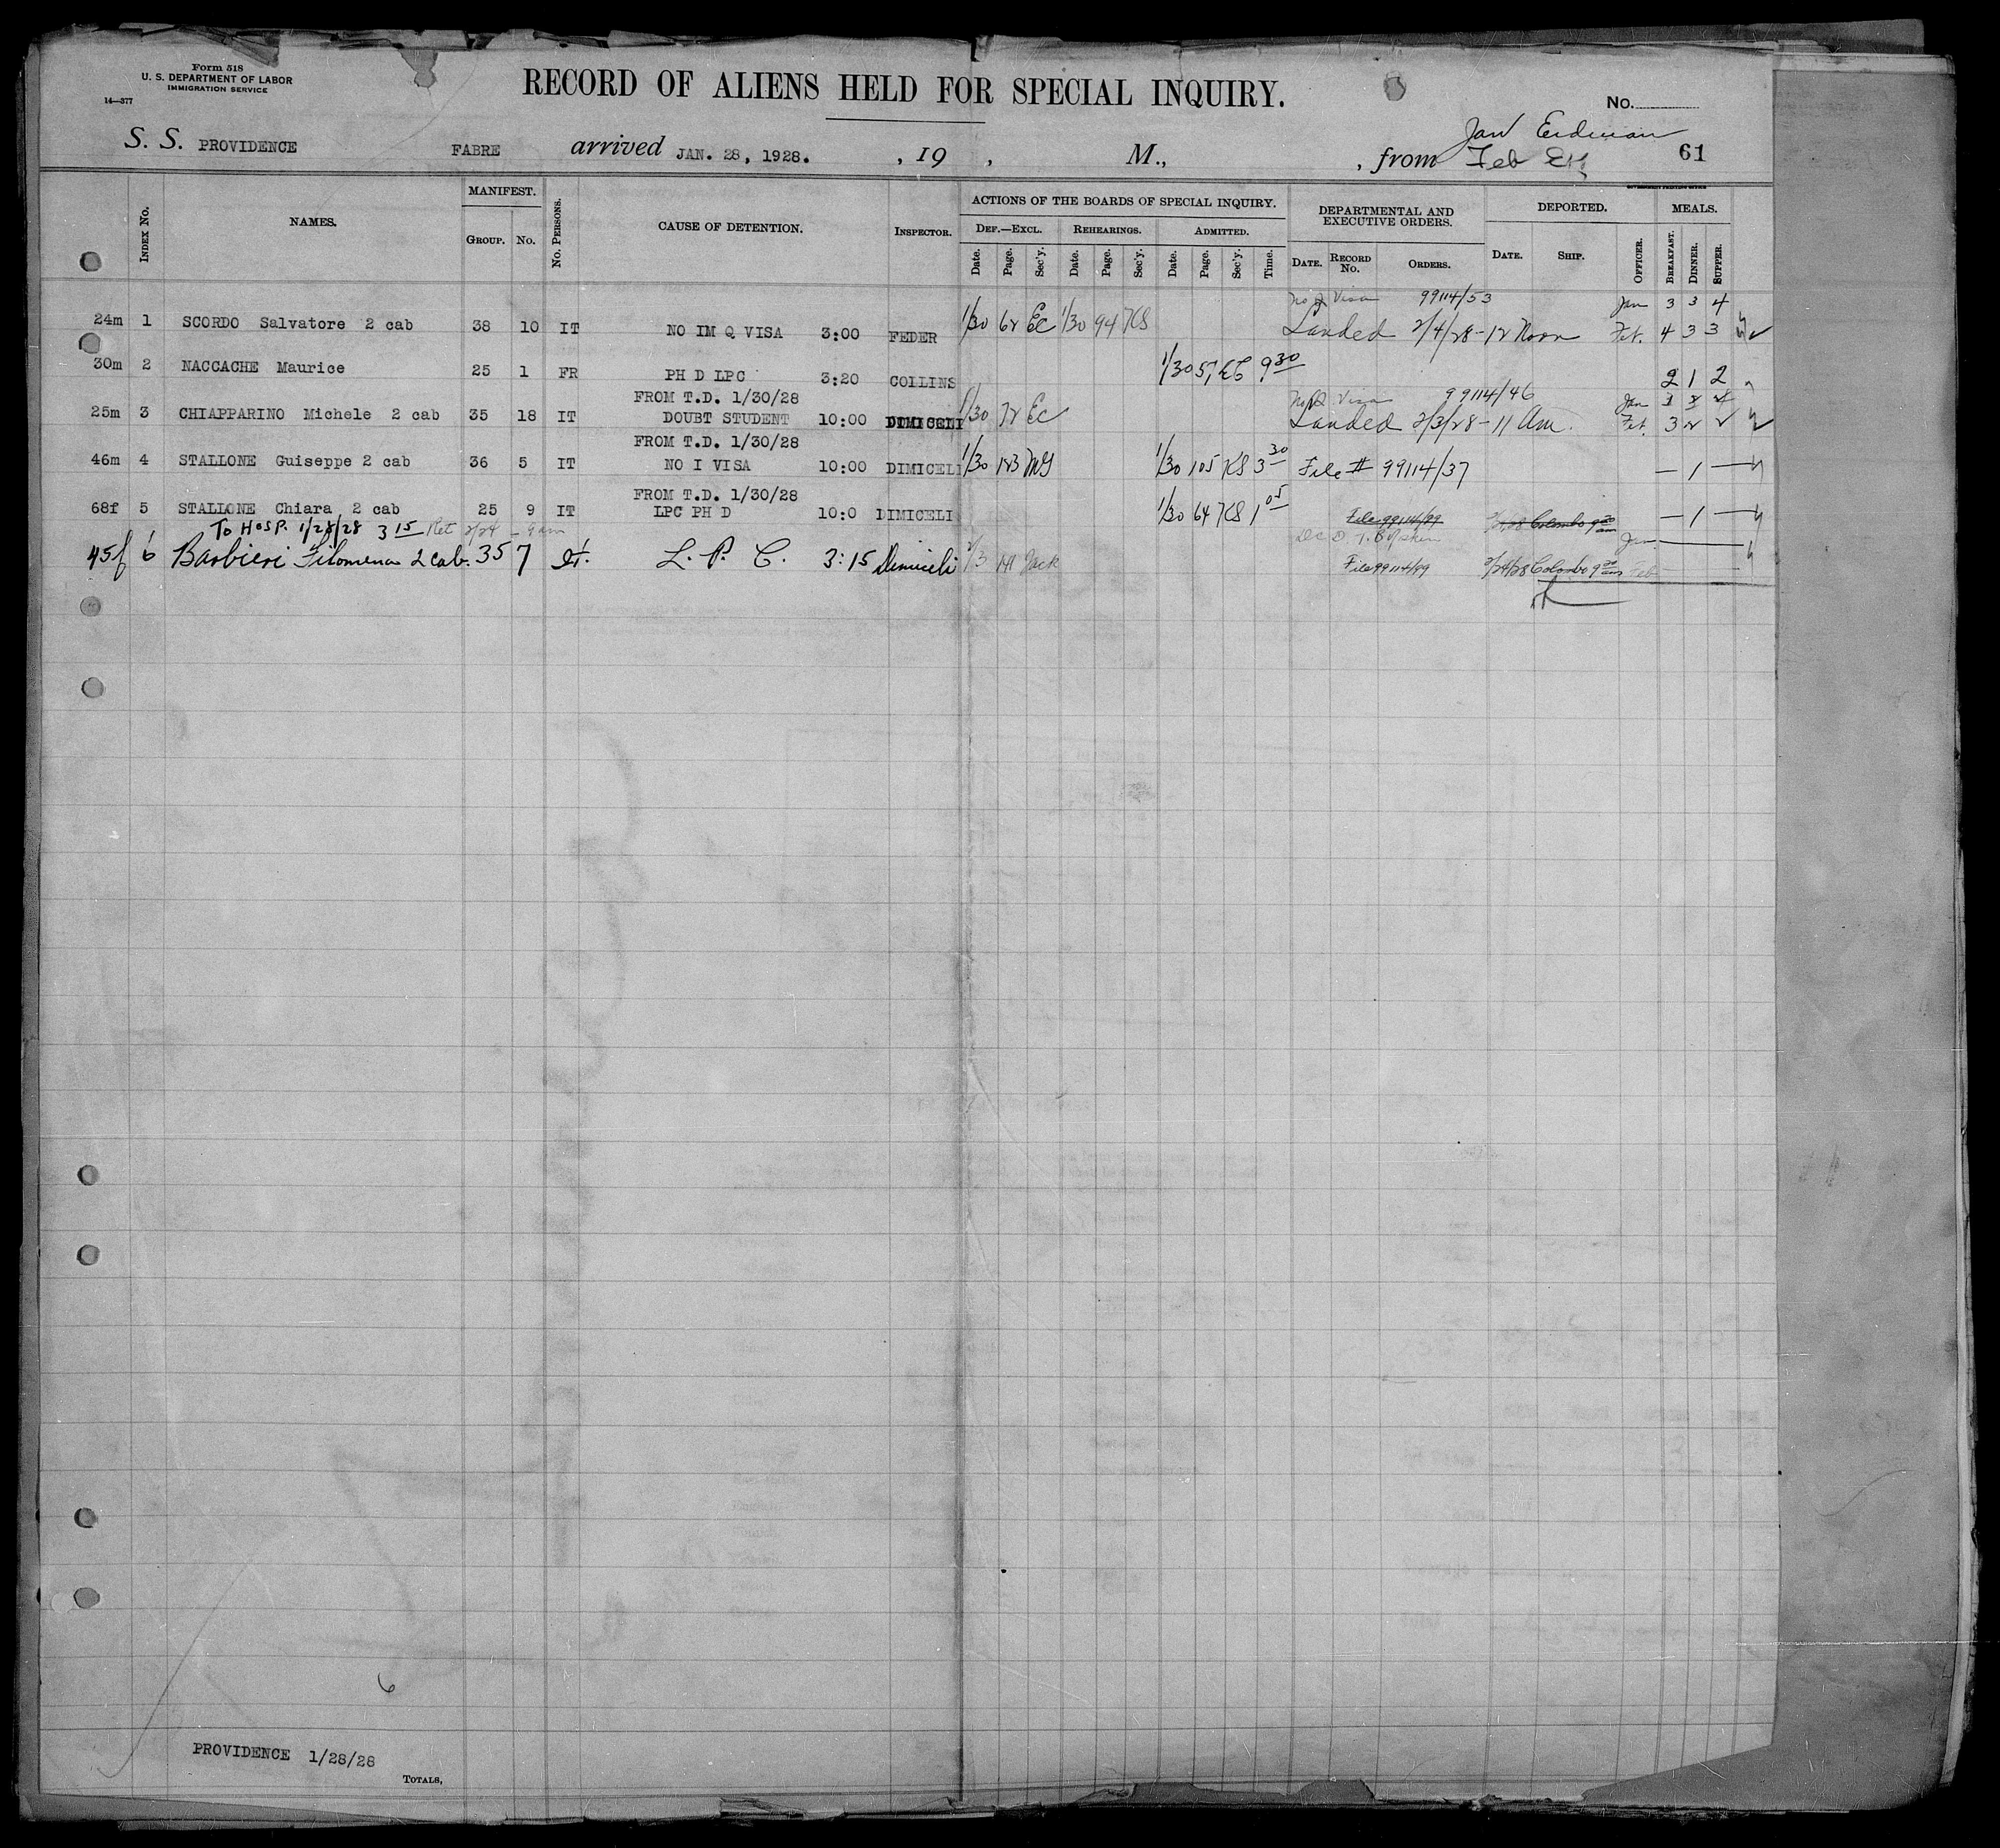 Form 518
U. S. DEPARTMENT OF LABOR
IMMIGRATION SERVICE
14—377
RECORD OF ALIENS HELD FOR SPECIAL INQUIRY.
No.
S. S. PROVIDENCE FABRE arrived JAN. 28, 1928. , 19 , M., , from Jan Erdman 61
Feb
GOVERNMENT PRINTING OFFICE
INDEX No. NAMES. MANIFEST. GROUP. No. No. PERSONS. CAUSE OF DETENTION. INSPECTOR.
ACTIONS OF THE BOARDS OF SPECIAL INQUIRY. DEF.—EXCL. REHEARINGS. ADMITTED.
Date. Page. Sec'y. Date. Page. Sec'y. Date. Page. Sec'y. Time.
DEPARTMENTAL AND EXECUTIVE ORDERS. DATE. RECORD No. ORDERS.
DEPORTED. DATE. SHIP. OFFICER. MEALS. BREAKFAST. DINNER. SUPPER.
Visa 99114/53 Jan 3 3 4
24m 1 SCORDO Salvatore 2 cab 38 10 IT NO IM Q VISA 3:00 FEDER 1/30 62 EC 1/30 94 KS Landed 2/4/28 - 12 Noon Feb. 4 3 3
30m 2 NACCACHE Maurice 25 1 FR PH D LPC 3:20 COLLINS 1/30 9 30 2 1 2
FROM T.D. 1/30/28 Visa 99114/46 Jan
25m 3 CHIAPPARINO Michele 2 cab 35 18 IT DOUBT STUDENT 10:00 DIMICELI 1/30 72 EC Landed 2/3/28 - 11 Am. Feb. 3 2 2
FROM T.D. 1/30/28
46m 4 STALLONE Guiseppe 2 cab 36 5 IT NO I VISA 10:00 DIMICELI 1/30 123 MG 1/30 105 KS 3 30 File # 99114/37 — 1 —
FROM T.D. 1/30/28
68f 5 STALLONE Chiara 2 cab 25 9 IT LPC PH D 10:0 DIMICELI 1/30 64 KS 1 05 File 99114/99 Colombo 9 30 am — 1 —
To Hosp. 1/28/28 3 15 Ret 2/24 - 9 am Jan
45f 6 Barbieri Filomena 2 cab. 35 7 It. L. P. C. 3:15 Dimiceli 2/3 141 Jack File 99114/99 2/24/28 Colombo 9 30 am Feb
6
PROVIDENCE 1/28/28
TOTALS,